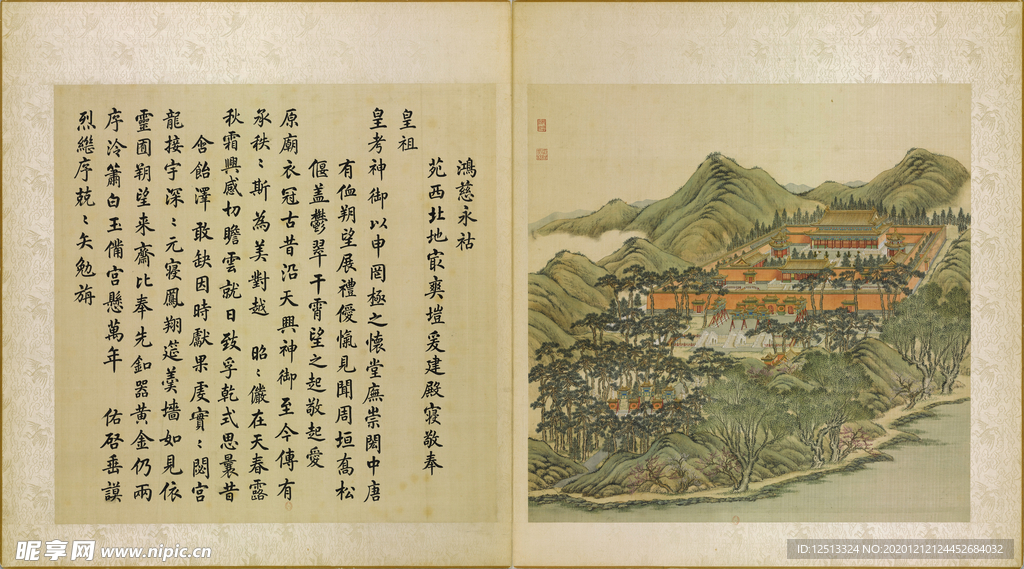 鴻慈永祜
苑西北地寂爽塏爰建殿寢敬奉
皇祖
皇考神御以申罔極之懷堂廡崇閎中唐
有侐朔望展禮優愾見聞周垣喬松
偃盖鬱翠干霄望之起敬起愛
原廟衣冠古昔沿天興神御至今傳有
承秩〻斯為美對越 昭〻儼在天春露
秋霜興感切瞻雲就日致孚乾式思曩昔
含飴澤敢缺因時獻果虔實〻閟宮
龍接宇深〻元寢鳳翔筵羹墻如見依
靈囿朔望来齋比奉先釦器黄金仍兩
序泠簫白玉備宮懸萬年 佑啓垂謨
烈繼序兢〻矢勉旃
昵享网 www.nipic.cn
ID:12513324 NO:20201212124452684032